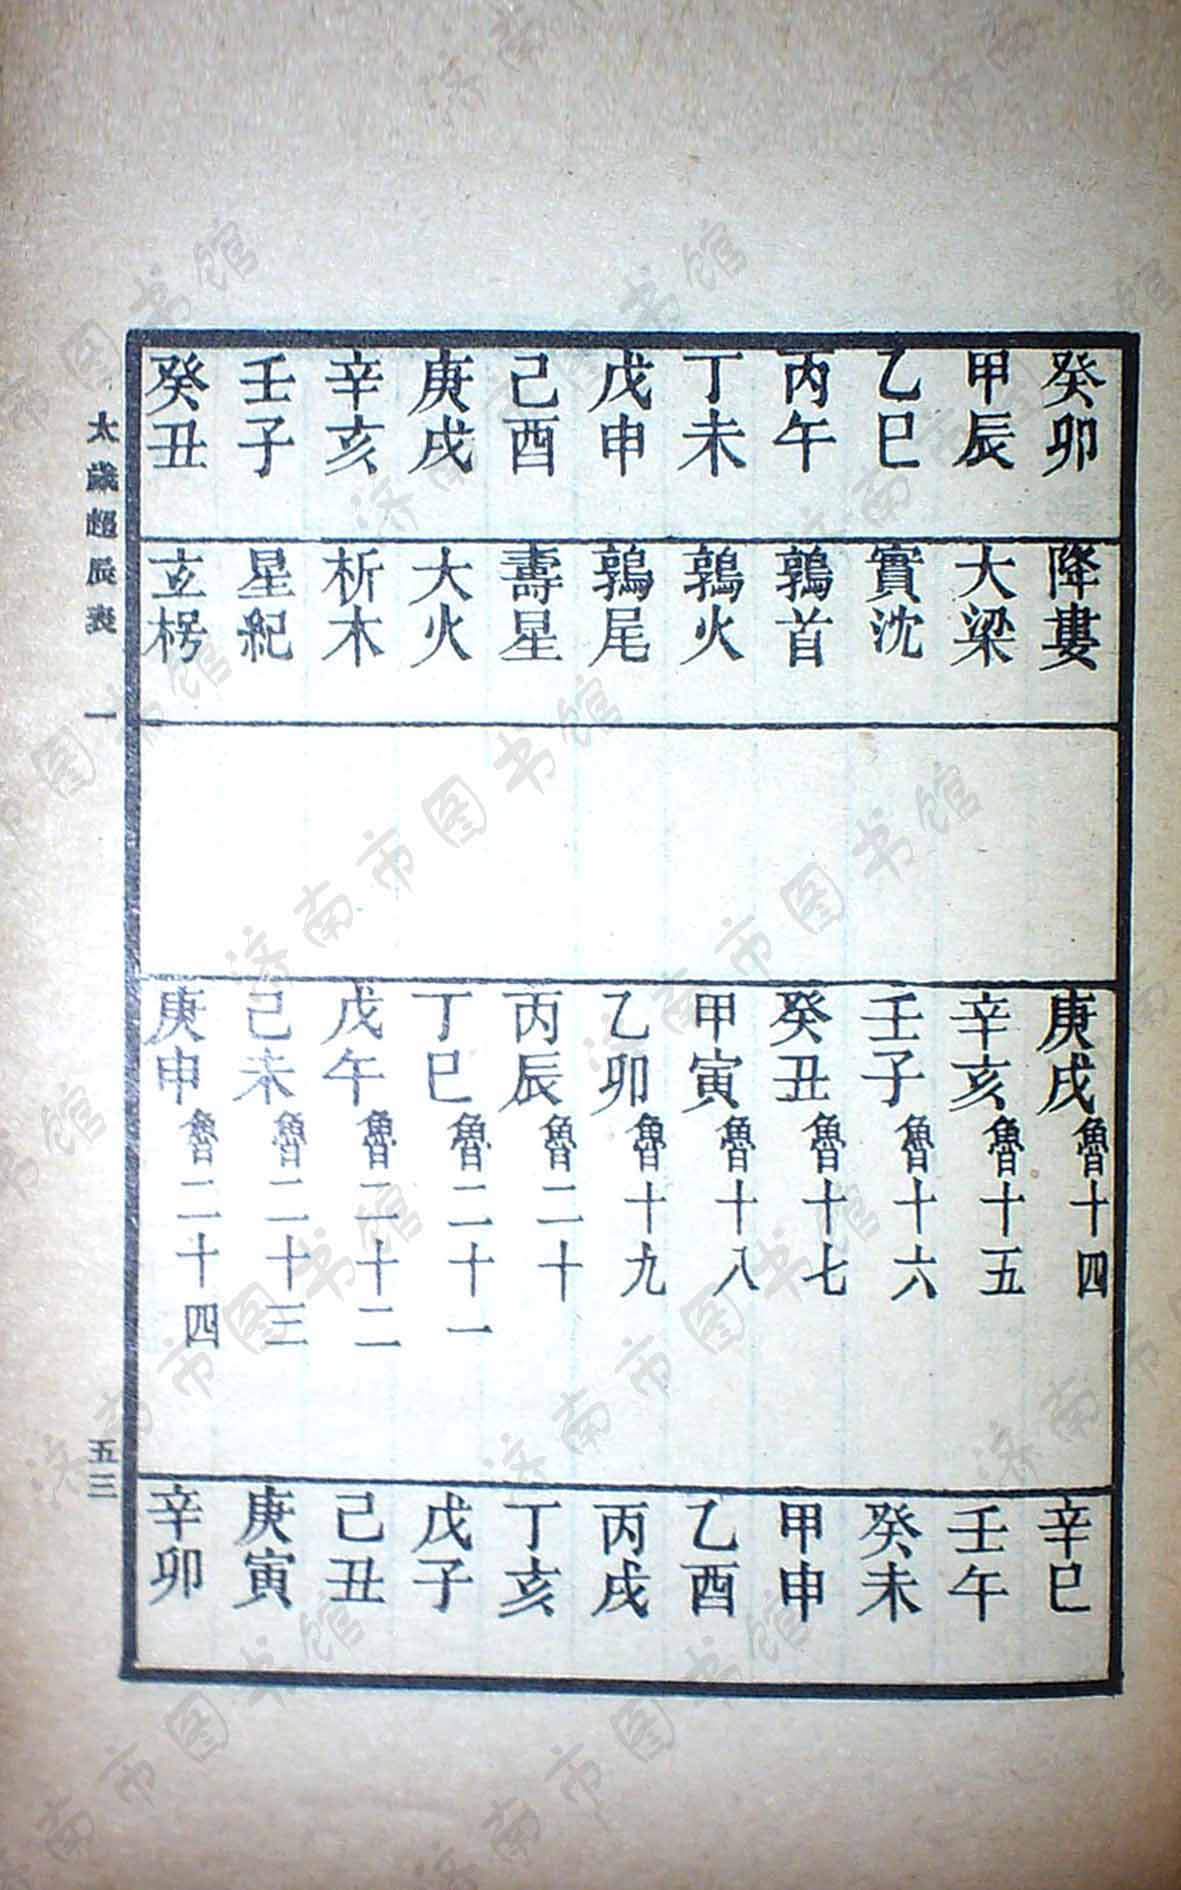 癸卯 降婁 庚戌 魯十四 辛巳
甲辰 大梁 辛亥 魯十五 壬午
乙巳 實沈 壬子 魯十六 癸未
丙午 鶉首 癸丑 魯十七 甲申
丁未 鶉火 甲寅 魯十八 乙酉
戊申 鶉尾 乙卯 魯十九 丙戌
己酉 壽星 丙辰 魯二十 丁亥
庚戌 大火 丁巳 魯二十一 戊子
辛亥 析木 戊午 魯二十二 己丑
壬子 星紀 己未 魯二十三 庚寅
癸丑 玄枵 庚申 魯二十四 辛卯
太歲超辰表 一 五三
济南市图书馆